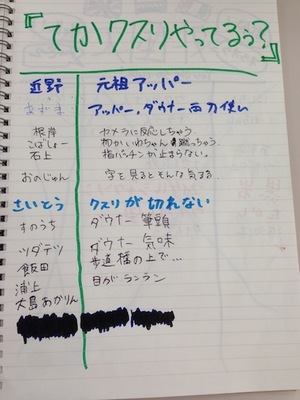 『てかクスリやってるぅ?』
近野 元祖アッパー
あずま アッパー、ダウナー両刀使い
根岸 カメラに反応しちゃう
こばしょー 物かいわちゃん蹴っちゃう
石上 指パッチンが止まらない。
おのじゅん 字を見るとそんな気する
さいとう クスリが切れない
すのうち ダウナー 筆頭
ツダテツ ダウナー 気味
飯田 歩道橋の上で…
浦上 目がランラン
大島あかりん